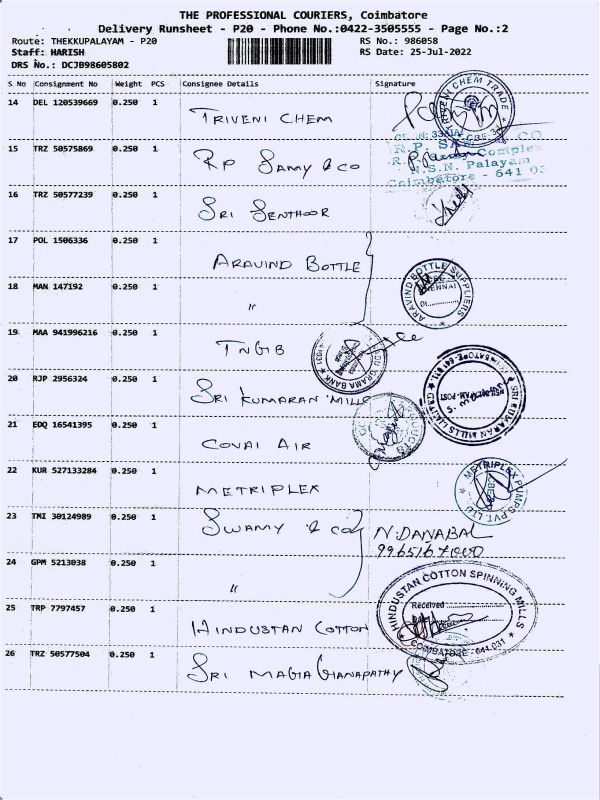 THE PROFESSIONAL COURIERS, Coimbatore
Delivery Runsheet - P20 - Phone No.:0422-3505555 - Page No.:2
Route: THEKKUPALAYAM - P20 RS No.: 986058
Staff: HARISH RS Date: 25-Jul-2022
DRS No.: DCJB98605802
S No Consignment No Weight PCS Consignee Details Signature
14 DEL 120539669 0.250 1 TRIVENI CHEM
TRIVENI CHEM TRADE
15 TRZ 50575869 0.250 1 RP SAMY & CO
N.S.N. Palayam
Coimbatore - 641 031
16 TRZ 50577239 0.250 1 SRI SENTHOOR
17 POL 1506336 0.250 1 ARAVIND BOTTLE
ARAVIND BOTTLE SUPPLIERS
18 MAN 147192 0.250 1 "
19 MAA 941996216 0.250 1 TNGB
GRAMA BANK
20 RJP 2956324 0.250 1 SRI KUMARAN MILLS
SRI KUMARAN MILLS LIMITED
21 EDQ 16541395 0.250 1 COVAI AIR
22 KUR 527133284 0.250 1 METRIPLEX
METRIPLEX PUMPS PVT. LTD
23 TMI 30124989 0.250 1 SWAMY & CO N. DANABAL
24 GPM 5213038 0.250 1 "
25 TRP 7797457 0.250 1 HINDUSTAN COTTON
HINDUSTAN COTTON SPINNING MILLS
Received
COIMBATORE - 641 031
26 TRZ 50577504 0.250 1 SRI MAGIA GANAPATHY